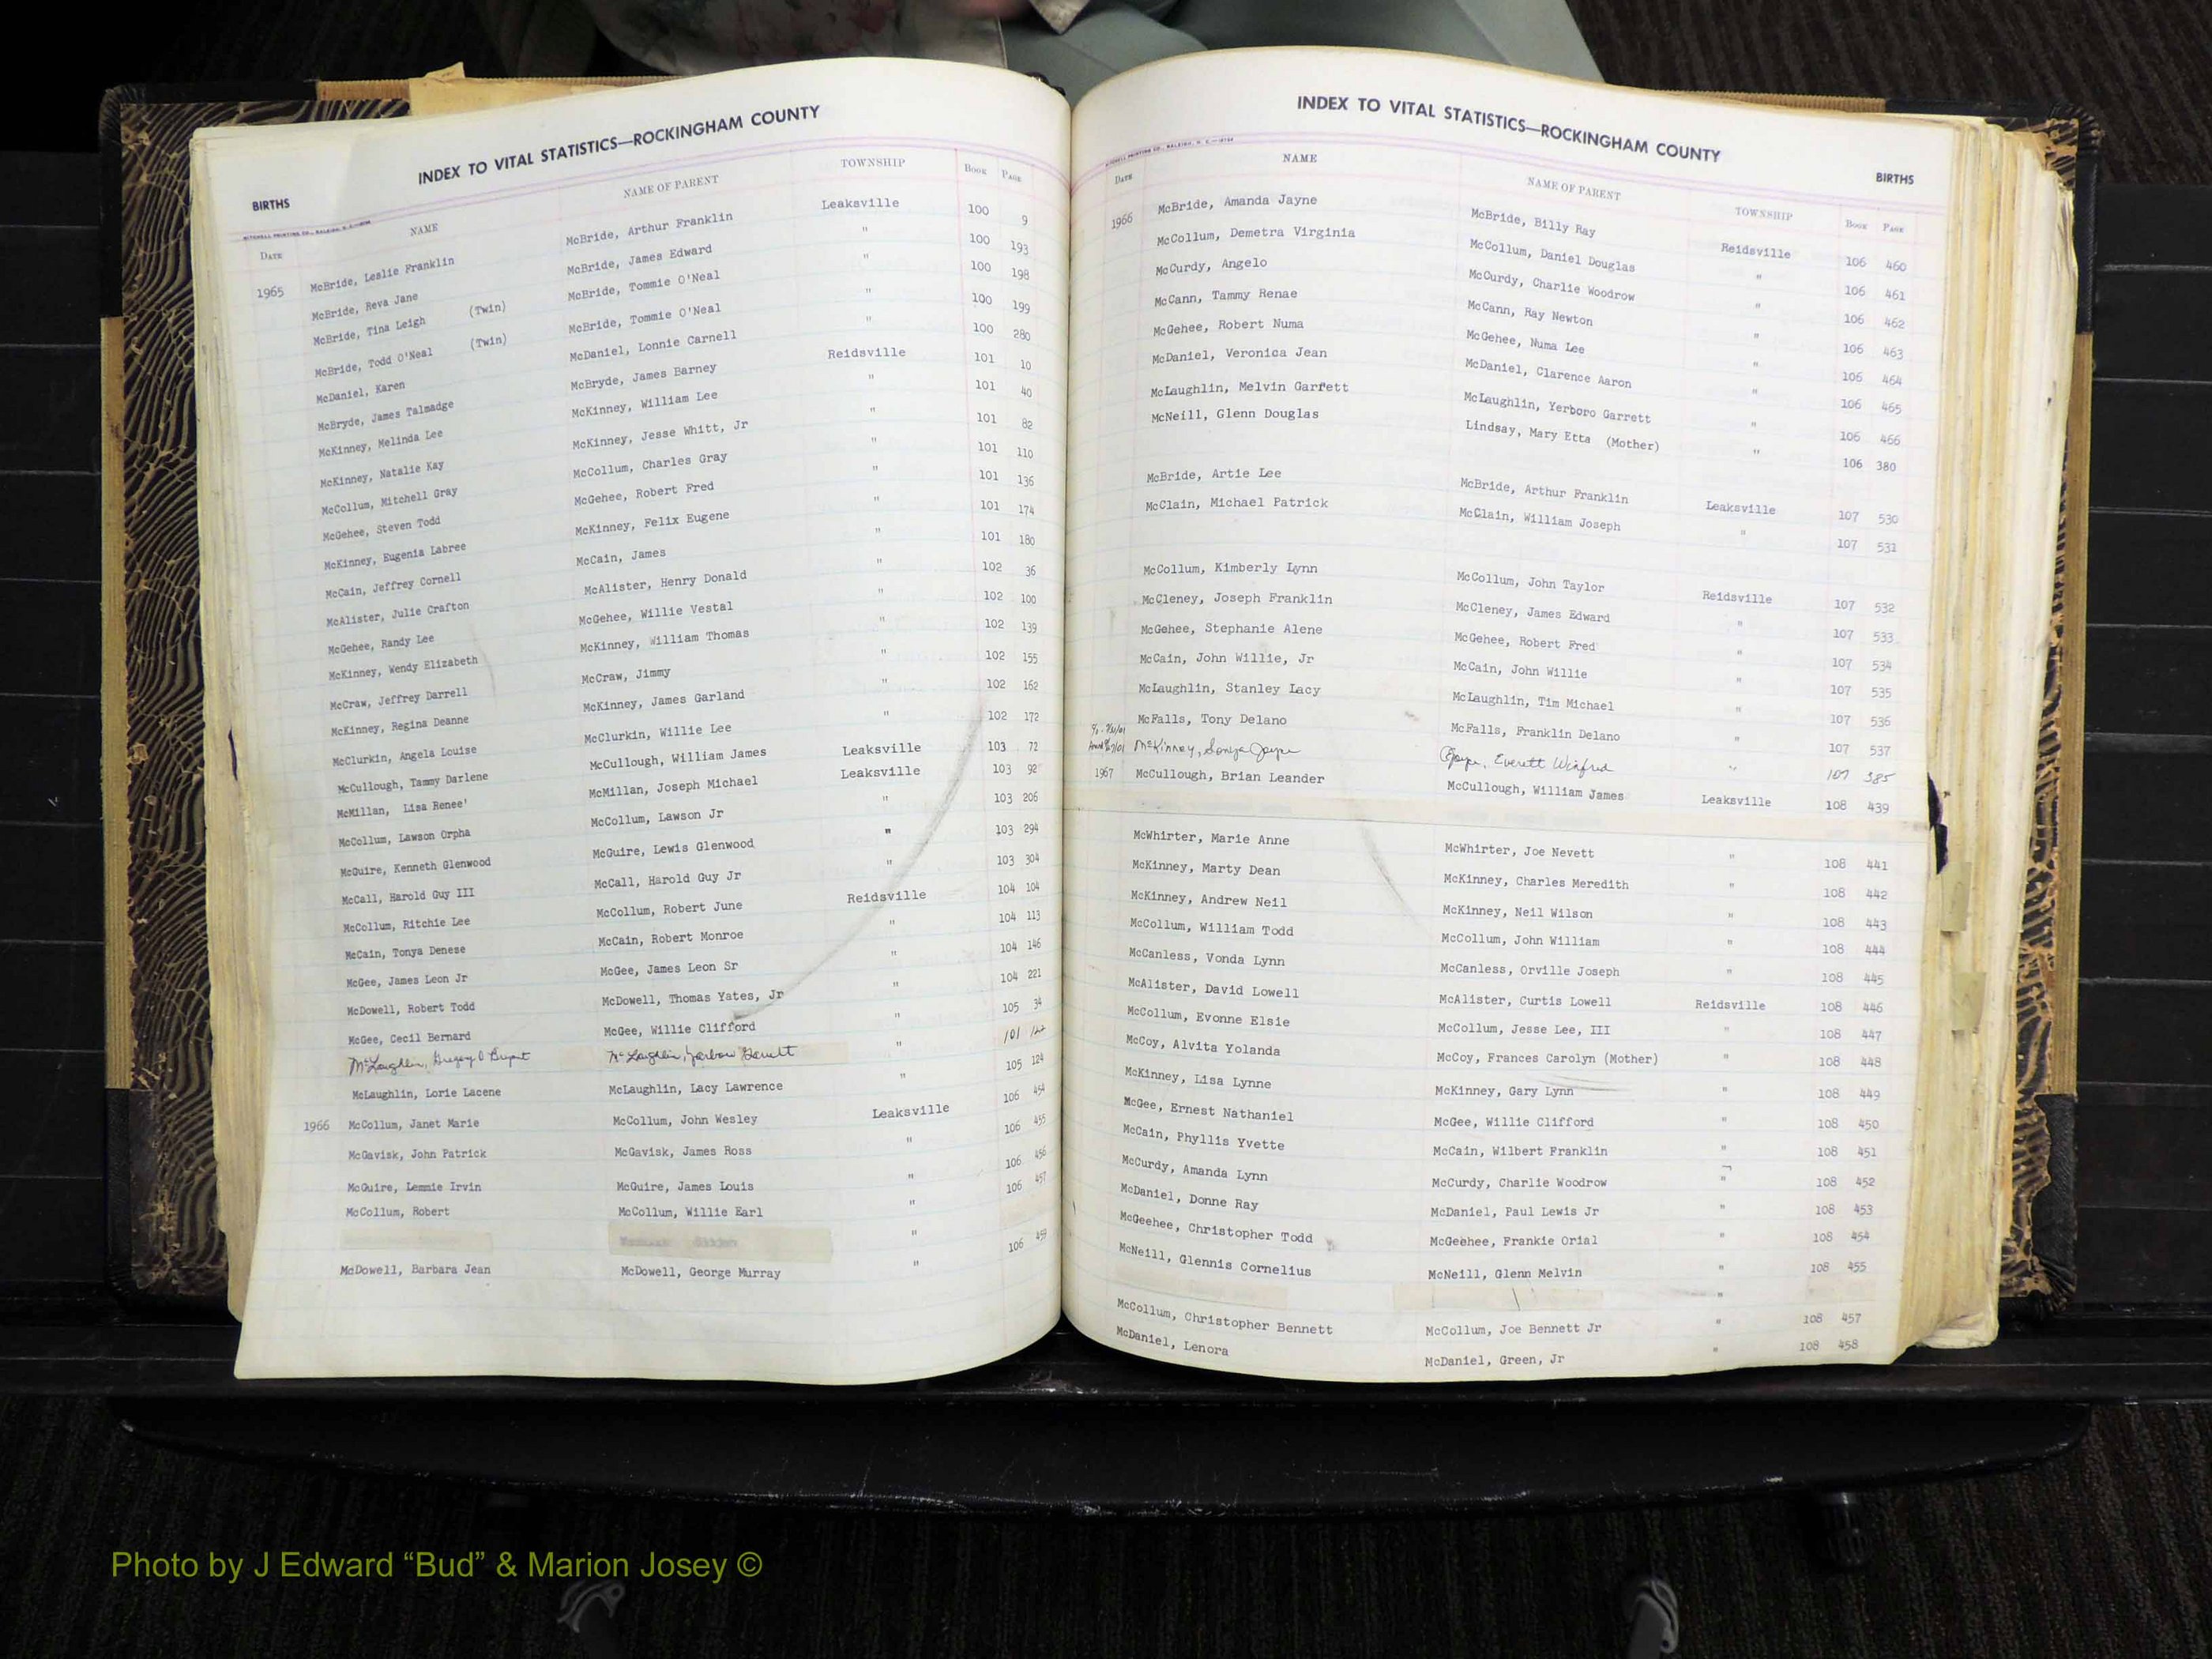 INDEX TO VITAL STATISTICS—ROCKINGHAM COUNTY
BIRTHS
DATE NAME NAME OF PARENT TOWNSHIP BOOK PAGE
1965 McBride, Leslie Franklin McBride, Arthur Franklin Leaksville 100 9
McBride, Reva Jane McBride, James Edward " 100 193
McBride, Tina Leigh (Twin) McBride, Tommie O'Neal " 100 198
McBride, Todd O'Neal (Twin) McBride, Tommie O'Neal " 100 199
McDaniel, Karen McDaniel, Lonnie Carnell " 100 280
McBryde, James Talmadge McBryde, James Barney Reidsville 101 10
McKinney, Melinda Lee McKinney, William Lee " 101 40
McKinney, Natalie Kay McKinney, Jesse Whitt, Jr " 101 82
McCollum, Mitchell Gray McCollum, Charles Gray " 101 110
McGehee, Steven Todd McGehee, Robert Fred " 101 136
McKinney, Eugenia Labree McKinney, Felix Eugene " 101 174
McCain, Jeffrey Cornell McCain, James " 101 180
McAlister, Julie Crafton McAlister, Henry Donald " 102 36
McGehee, Randy Lee McGehee, Willie Vestal " 102 100
McKinney, Wendy Elizabeth McKinney, William Thomas " 102 139
McCraw, Jeffrey Darrell McCraw, Jimmy " 102 155
McKinney, Regina Deanne McKinney, James Garland " 102 162
McClurkin, Angela Louise McClurkin, Willie Lee " 102 172
McCullough, Tammy Darlene McCullough, William James Leaksville 103 72
McMillan, Lisa Renee' McMillan, Joseph Michael Leaksville 103 92
McCollum, Lawson Orpha McCollum, Lawson Jr " 103 206
McGuire, Kenneth Glenwood McGuire, Lewis Glenwood " 103 294
McCall, Harold Guy III McCall, Harold Guy Jr " 103 304
McCollum, Ritchie Lee McCollum, Robert June Reidsville 104 104
McCain, Tonya Denese McCain, Robert Monroe " 104 113
McGee, James Leon Jr McGee, James Leon Sr " 104 146
McDowell, Robert Todd McDowell, Thomas Yates, Jr " 104 221
McGee, Cecil Bernard McGee, Willie Clifford " 105 34
McLaughlin, Bryant McLaughlin, Garrett " 101
McLaughlin, Lorie Lacene McLaughlin, Lacy Lawrence " 105 124
1966 McCollum, Janet Marie McCollum, John Wesley Leaksville 106 454
McGavisk, John Patrick McGavisk, James Ross " 106 455
McGuire, Lemmie Irvin McGuire, James Louis " 106 456
McCollum, Robert McCollum, Willie Earl " 106 457
"
McDowell, Barbara Jean McDowell, George Murray " 106 459
INDEX TO VITAL STATISTICS—ROCKINGHAM COUNTY
BIRTHS
MITCHELL PRINTING CO., RALEIGH, N. C.
DATE NAME NAME OF PARENT TOWNSHIP BOOK PAGE
1966 McBride, Amanda Jayne McBride, Billy Ray Reidsville 106 460
McCollum, Demetra Virginia McCollum, Daniel Douglas " 106 461
McCurdy, Angelo McCurdy, Charlie Woodrow " 106 462
McCann, Tammy Renae McCann, Ray Newton " 106 463
McGehee, Robert Numa McGehee, Numa Lee " 106 464
McDaniel, Veronica Jean McDaniel, Clarence Aaron " 106 465
McLaughlin, Melvin Garrett McLaughlin, Yerboro Garrett " 106 466
McNeill, Glenn Douglas Lindsay, Mary Etta (Mother) " 106 380
McBride, Artie Lee McBride, Arthur Franklin Leaksville 107 530
McClain, Michael Patrick McClain, William Joseph " 107 531
McCollum, Kimberly Lynn McCollum, John Taylor Reidsville 107 532
McCleney, Joseph Franklin McCleney, James Edward " 107 533
McGehee, Stephanie Alene McGehee, Robert Fred " 107 534
McCain, John Willie, Jr McCain, John Willie " 107 535
McLaughlin, Stanley Lacy McLaughlin, Tim Michael " 107 536
McFalls, Tony Delano McFalls, Franklin Delano " 107 537
McKinney, Sonya Everett Winfred " 107 385
1967 McCullough, Brian Leander McCullough, William James Leaksville 108 439
McWhirter, Marie Anne McWhirter, Joe Nevett " 108 441
McKinney, Marty Dean McKinney, Charles Meredith " 108 442
McKinney, Andrew Neil McKinney, Neil Wilson " 108 443
McCollum, William Todd McCollum, John William " 108 444
McCanless, Vonda Lynn McCanless, Orville Joseph " 108 445
McAlister, David Lowell McAlister, Curtis Lowell Reidsville 108 446
McCollum, Evonne Elsie McCollum, Jesse Lee, III " 108 447
McCoy, Alvita Yolanda McCoy, Frances Carolyn (Mother) " 108 448
McKinney, Lisa Lynne McKinney, Gary Lynn " 108 449
McGee, Ernest Nathaniel McGee, Willie Clifford " 108 450
McCain, Phyllis Yvette McCain, Wilbert Franklin " 108 451
McCurdy, Amanda Lynn McCurdy, Charlie Woodrow " 108 452
McDaniel, Donne Ray McDaniel, Paul Lewis Jr " 108 453
McGeehee, Christopher Todd McGeehee, Frankie Orial " 108 454
McNeill, Glennis Cornelius McNeill, Glenn Melvin " 108 455
"
McCollum, Christopher Bennett McCollum, Joe Bennett Jr " 108 457
McDaniel, Lenora McDaniel, Green, Jr " 108 458
Photo by J Edward “Bud” & Marion Josey ©